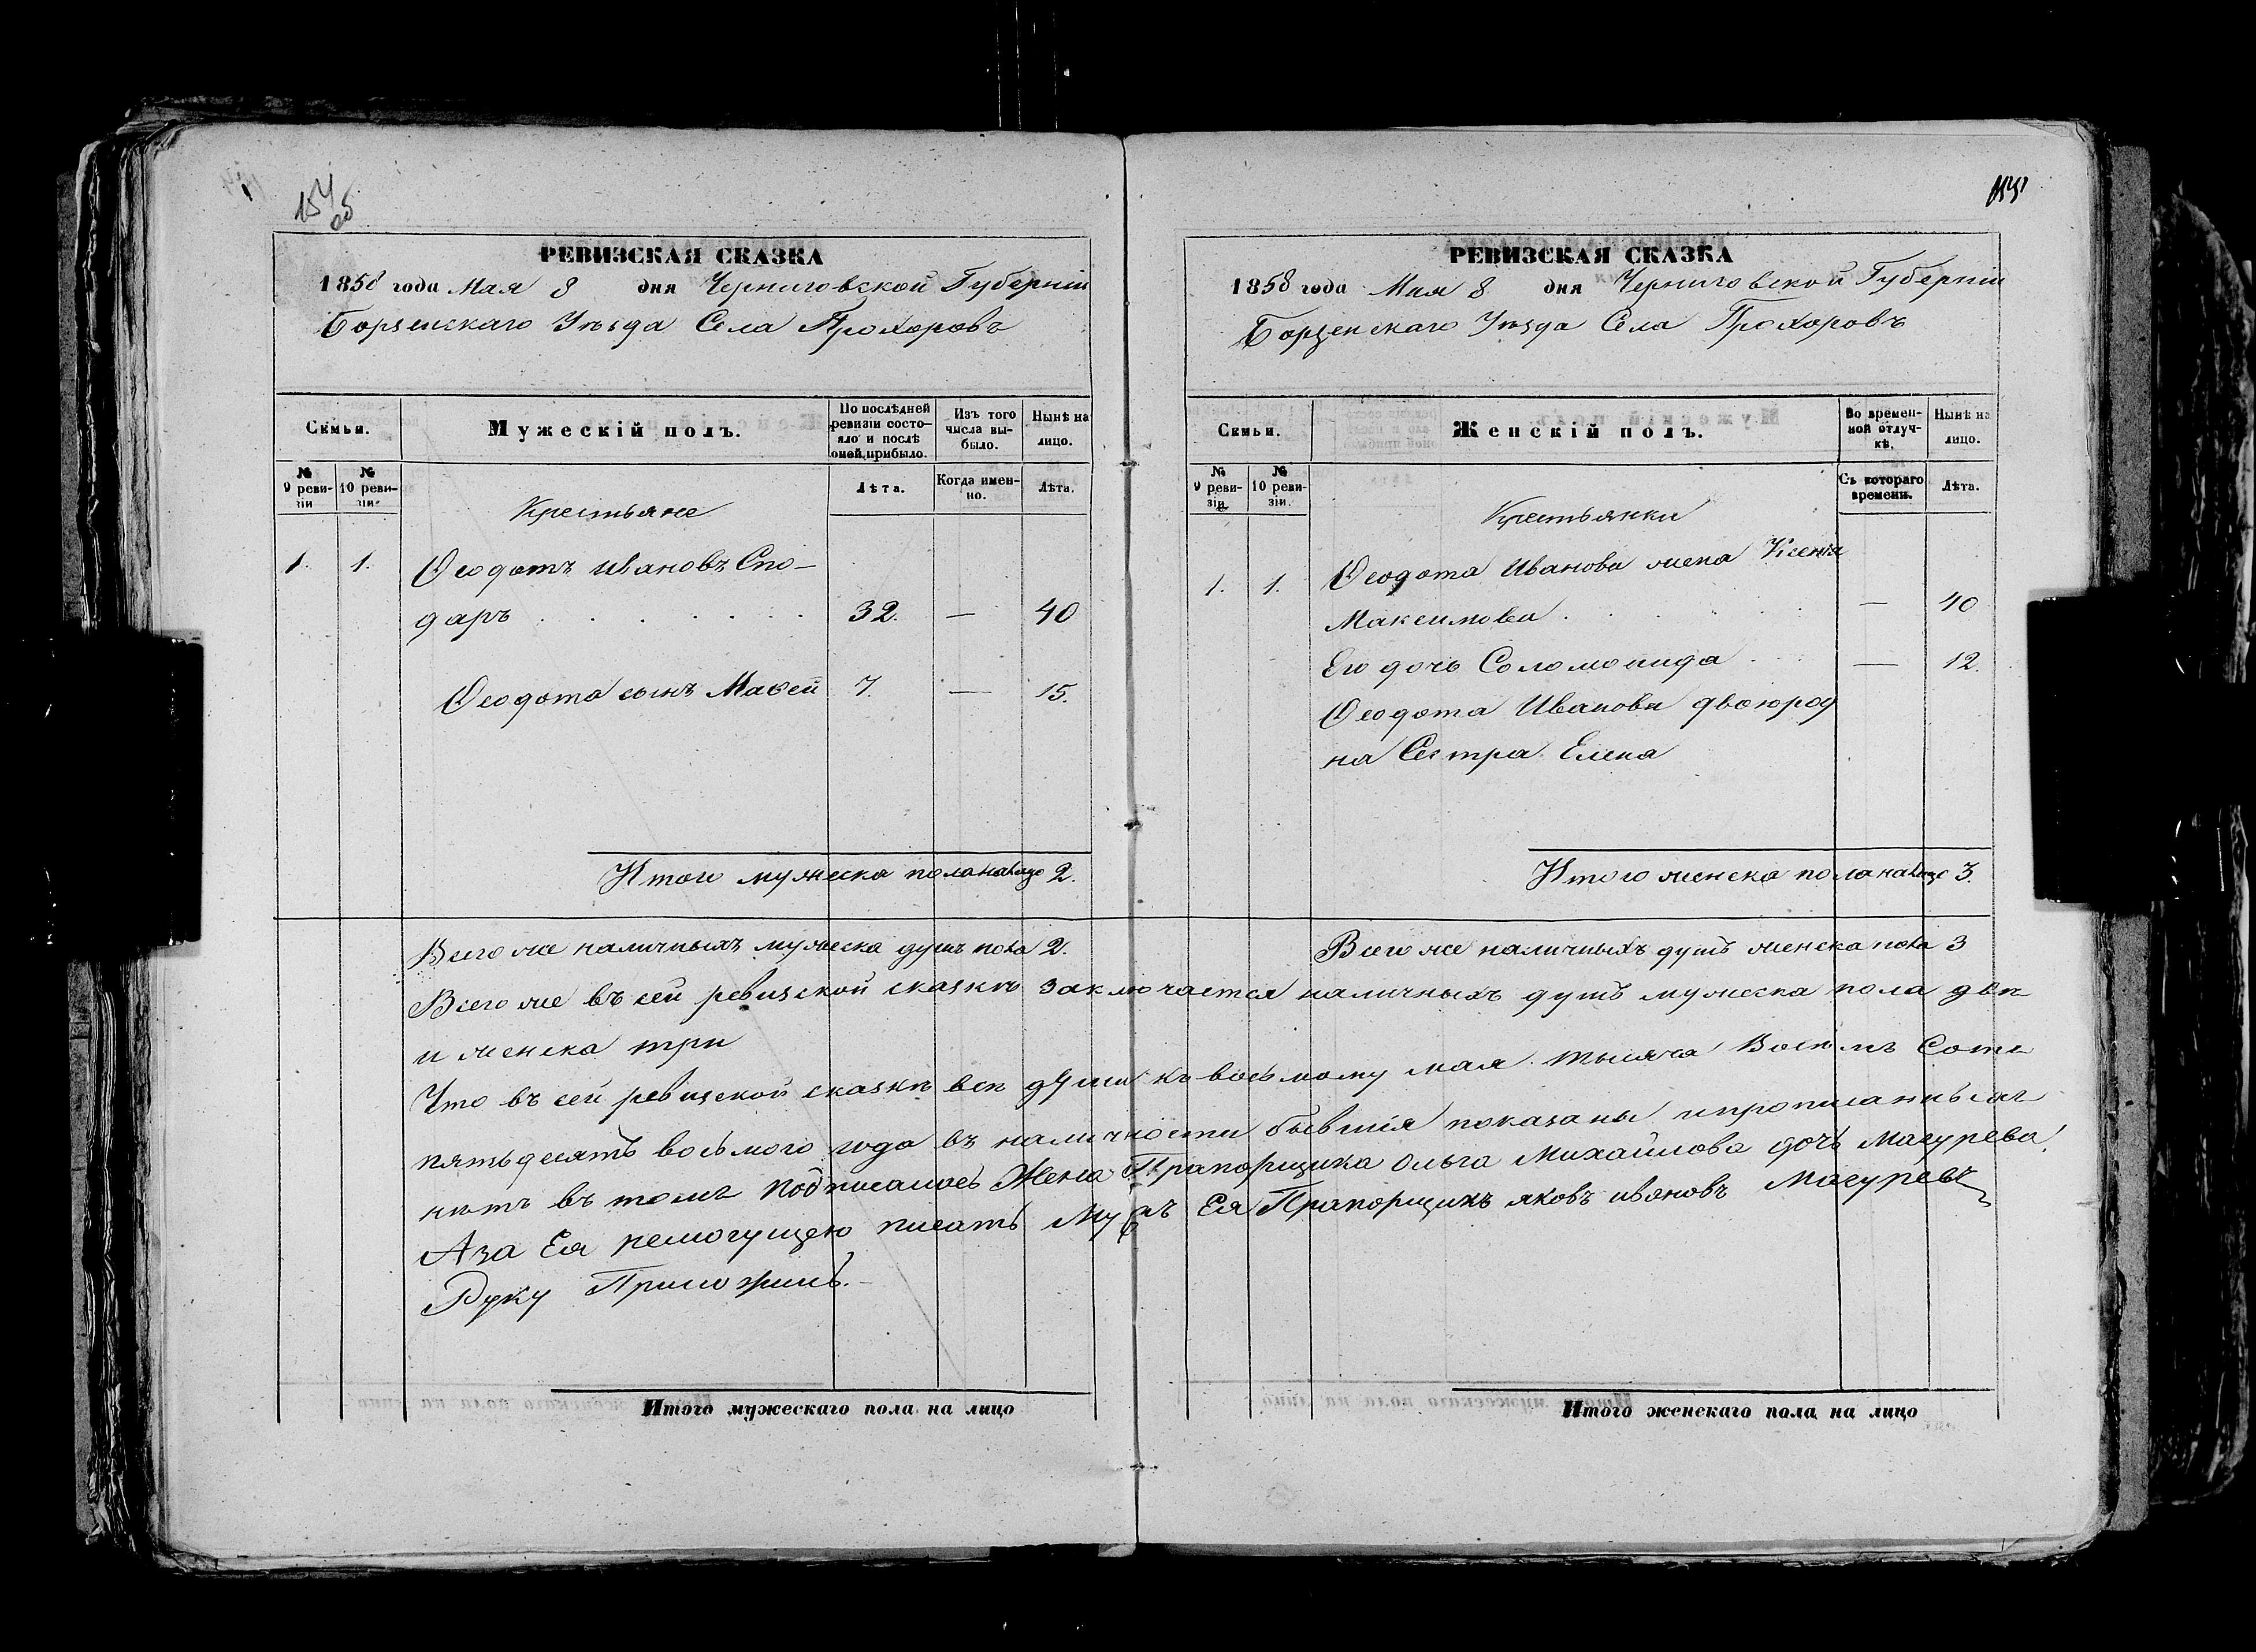 154
об
РЕВИЗСКАЯ СКАЗКА
1858 года Мая 8 дня Черниговской Губерніи
Борзенскаго Уѣзда Села Прохоровъ
Семьи.
Мужескій полъ.
По послѣдней ревизіи состояло и послѣ оной прибыло.
Изъ того числа выбыло.
Нынѣ на лицо.
№ 9 ревизіи
№ 10 ревизіи
Лѣта.
Когда именно.
Лѣта.
Крестьяне
1. 1. Ѳеодотъ Ивановъ Спо-
даръ 32. — 40
Ѳеодота сынъ Макей 7. — 15.
Итого мужеска пола налицо 2.
Всего же наличныхъ мужеска душъ пола 2.
155
РЕВИЗСКАЯ СКАЗКА
1858 года Мая 8 дня Черниговской Губерніи
Борзенскаго Уѣзда Села Прохоровъ
Семьи.
Женскій полъ.
Во временной отлучкѣ.
Нынѣ на лицо.
№ 9 ревизіи
№ 10 ревизіи.
Съ котораго времени.
Лѣта.
Крестьянки
1. 1. Ѳеодота Иванова жена Ксенія
Максимова — 40
Его дочь Соломонида — 12.
Ѳеодота Иванова двоюрод
на Сестра Елена
Итого женска пола налицо 3.
Всего же наличныхъ душъ женска пола 3
Всего же въ сей ревизской сказкѣ заключается наличныхъ душъ мужеска пола двѣ
и женска три
Что въ сей ревизской сказкѣ всѣ души къ восьмому мая тысяча Восѣмъ Сотъ
пятьдесятъ восьмого года въ наличности бывшія показаны и прописанныхъ
нѣтъ въ томъ подписалась Жена Прапорщика Ольга Михайлова дочь Магурева
А за Ея немогущею писать Мужъ Ея Прапорщикъ яковъ ивановъ Магуревъ
Руку Приложилъ.
Итого мужескаго пола на лицо
Итого женскаго пола на лицо